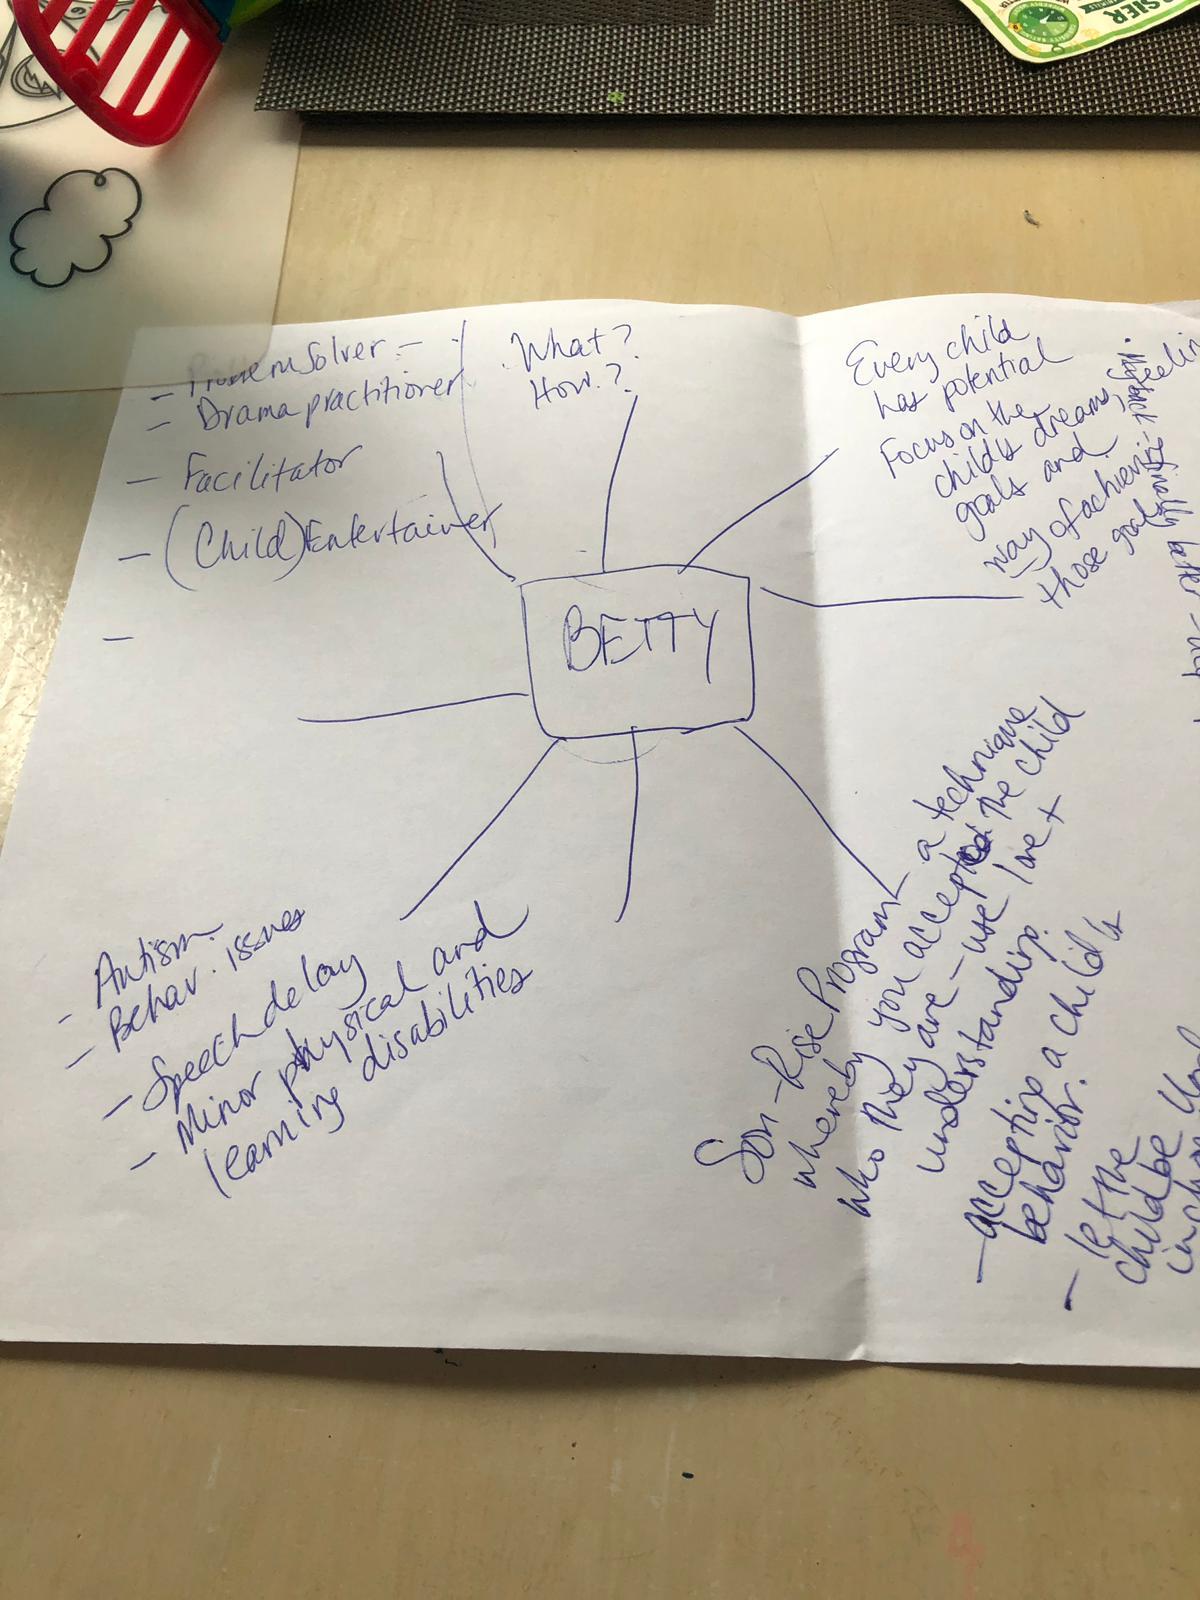 - Problem Solver -
- Drama practitioner
- Facilitator
- (Child) Entertainer
-
What?
How.?
Every child
has potential
Focus on the
child's dreams,
goals and
way of achievi
those goals
feelin
BETTY
- Autism
- Behav. issues
- Speech delay
- Minor physical and
learning disabilities
Son-Rise Program - a technique
whereby you accepted the child
who they are - use love +
understanding.
- accepting a child's
behavior.
- let the
child be
SIER